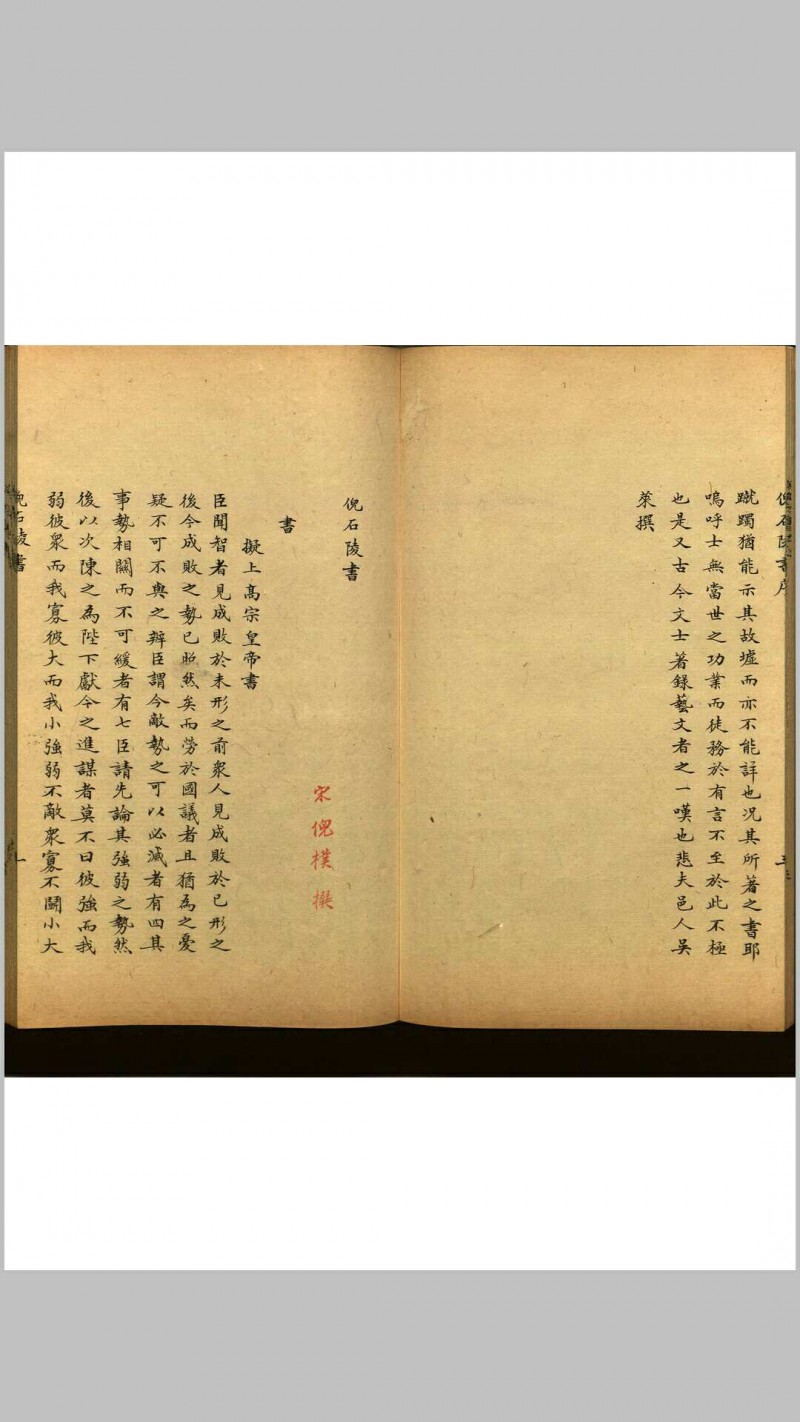 倪石陵書序
蹴躅猶能示其故墟而亦不能詳也况其所著之書耶
嗚呼士無當世之功業而徒務於有言不至於此不極
也是又古今文士著錄藝文者之一嘆也悲夫邑人吳
萊撰
倪石陵書
宋倪樸撰
書
擬上高宗皇帝書
臣聞智者見成敗於未形之前衆人見成敗於已形之
後今成敗之勢已昭然矣而勞於國議者且猶為之憂
疑不可不與之辨臣謂今敵勢之可以必滅者有四其
事勢相關而不可緩者有七臣請先論其強弱之勢然
後以次陳之為陛下獻今之進謀者莫不曰彼強而我
弱彼衆而我寡彼大而我小強弱不敵衆寡不鬬小大
倪石陵書
一